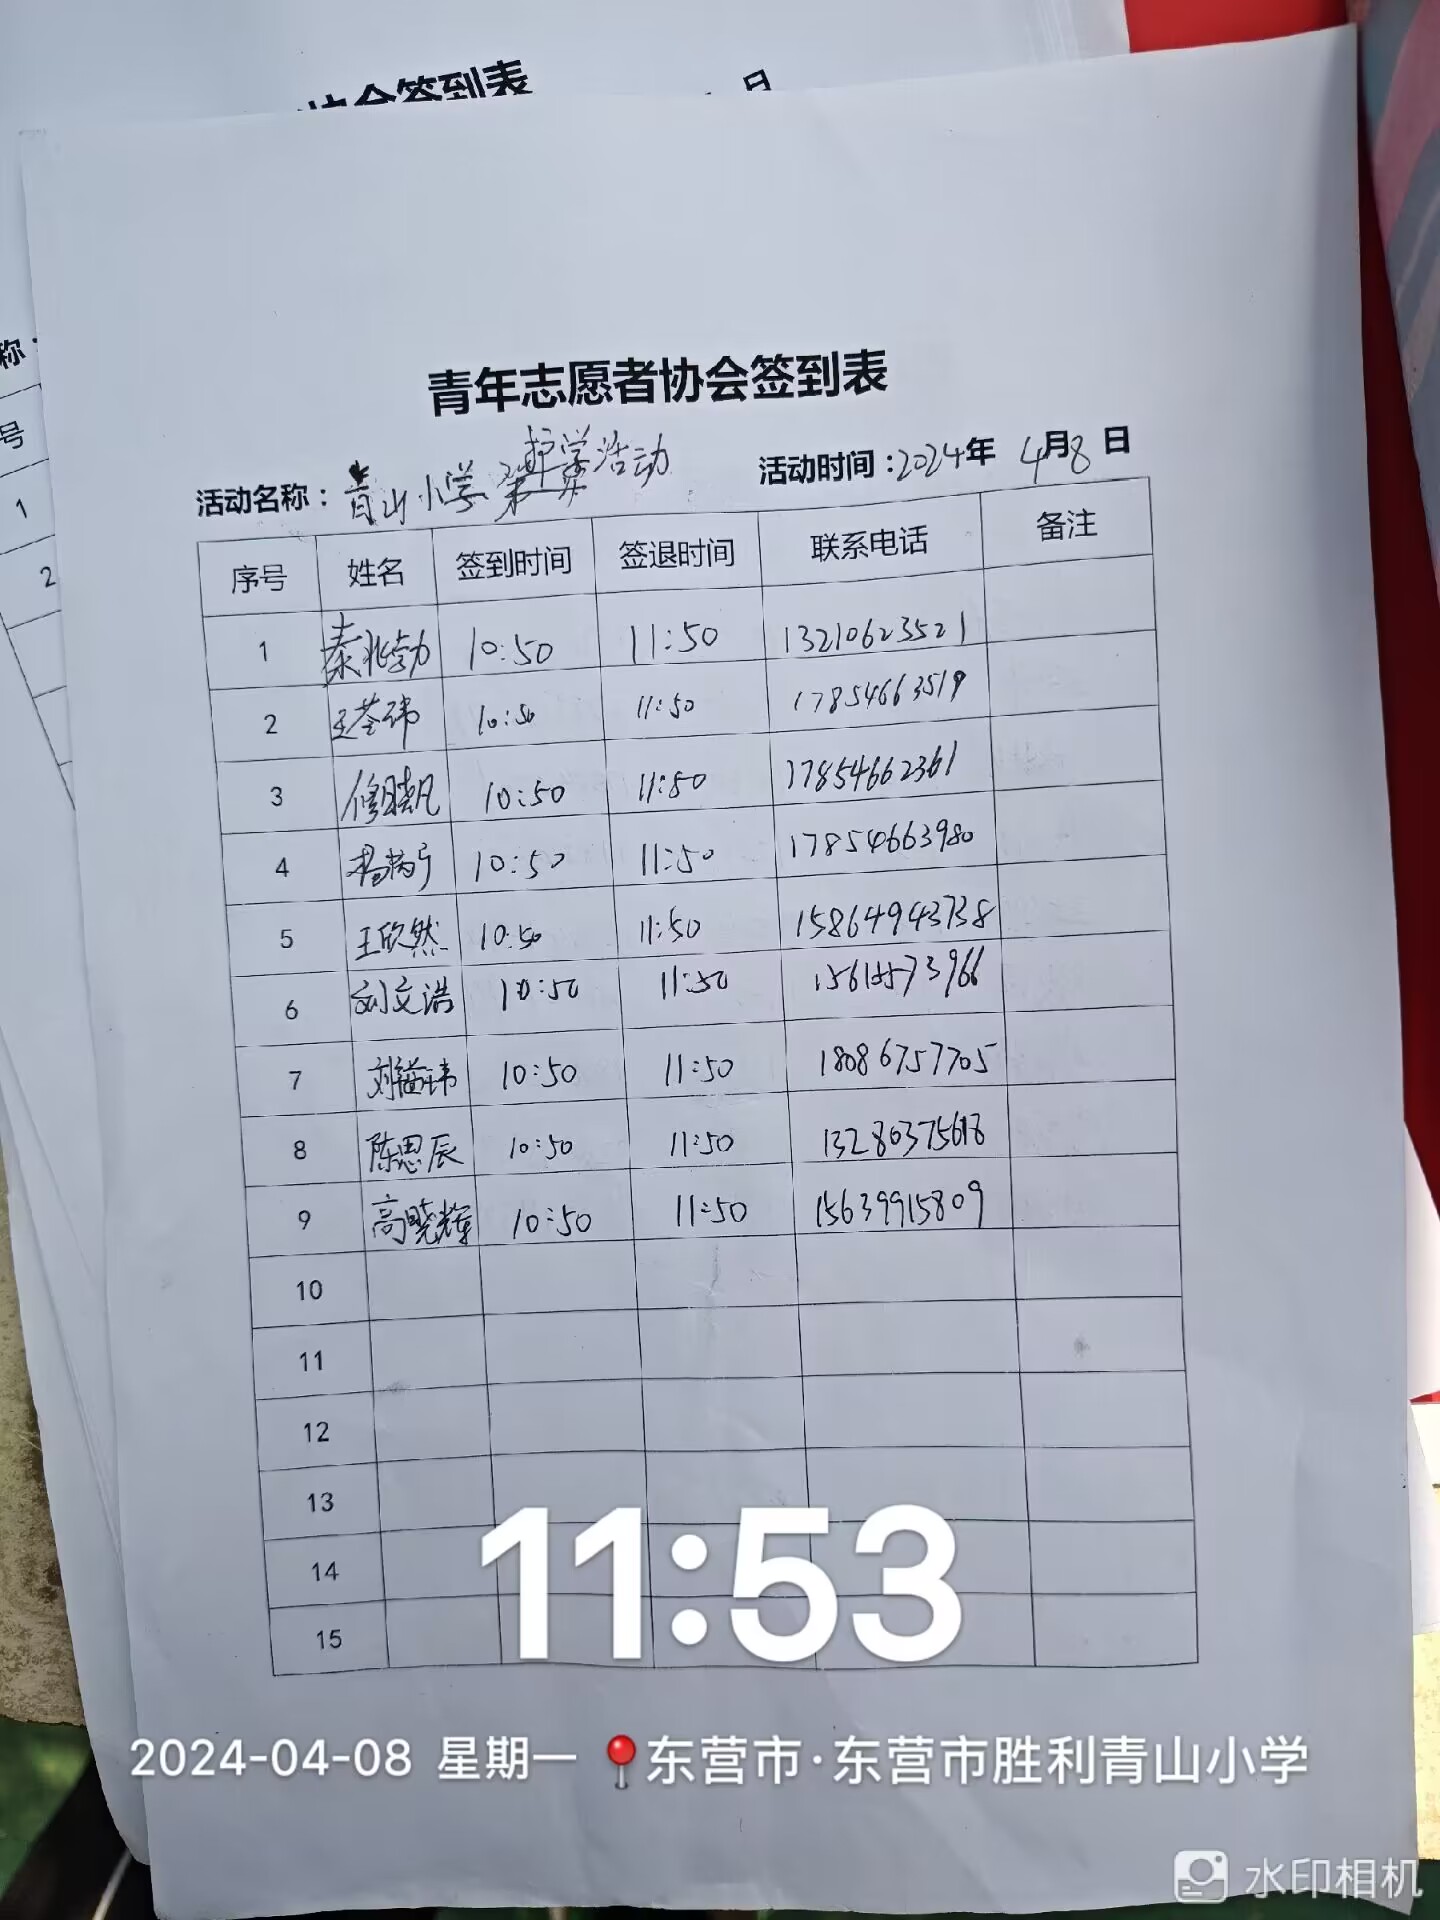 协会签到表 日
称：
号
1
2
青年志愿者协会签到表
活动名称：青山小学护学活动 活动时间：2024年 4月8日
序号 姓名 签到时间 签退时间 联系电话 备注
1 秦兆勃 10:50 11:50 13210623521
2 王荃玮 10:50 11:50 17854663519
3 修晓凡 10:50 11:50 17854662361
4 10:50 11:50 17854663980
5 王欣然 10:50 11:50 15864943738
6 刘文浩 10:50 11:50
7 刘镒玮 10:50 11:50 18086757705
8 陈思辰 10:50 11:50 13280375618
9 高晓辉 10:50 11:50 15639915809
10
11
12
13
14
15
11:53
2024-04-08 星期一 东营市·东营市胜利青山小学
水印相机